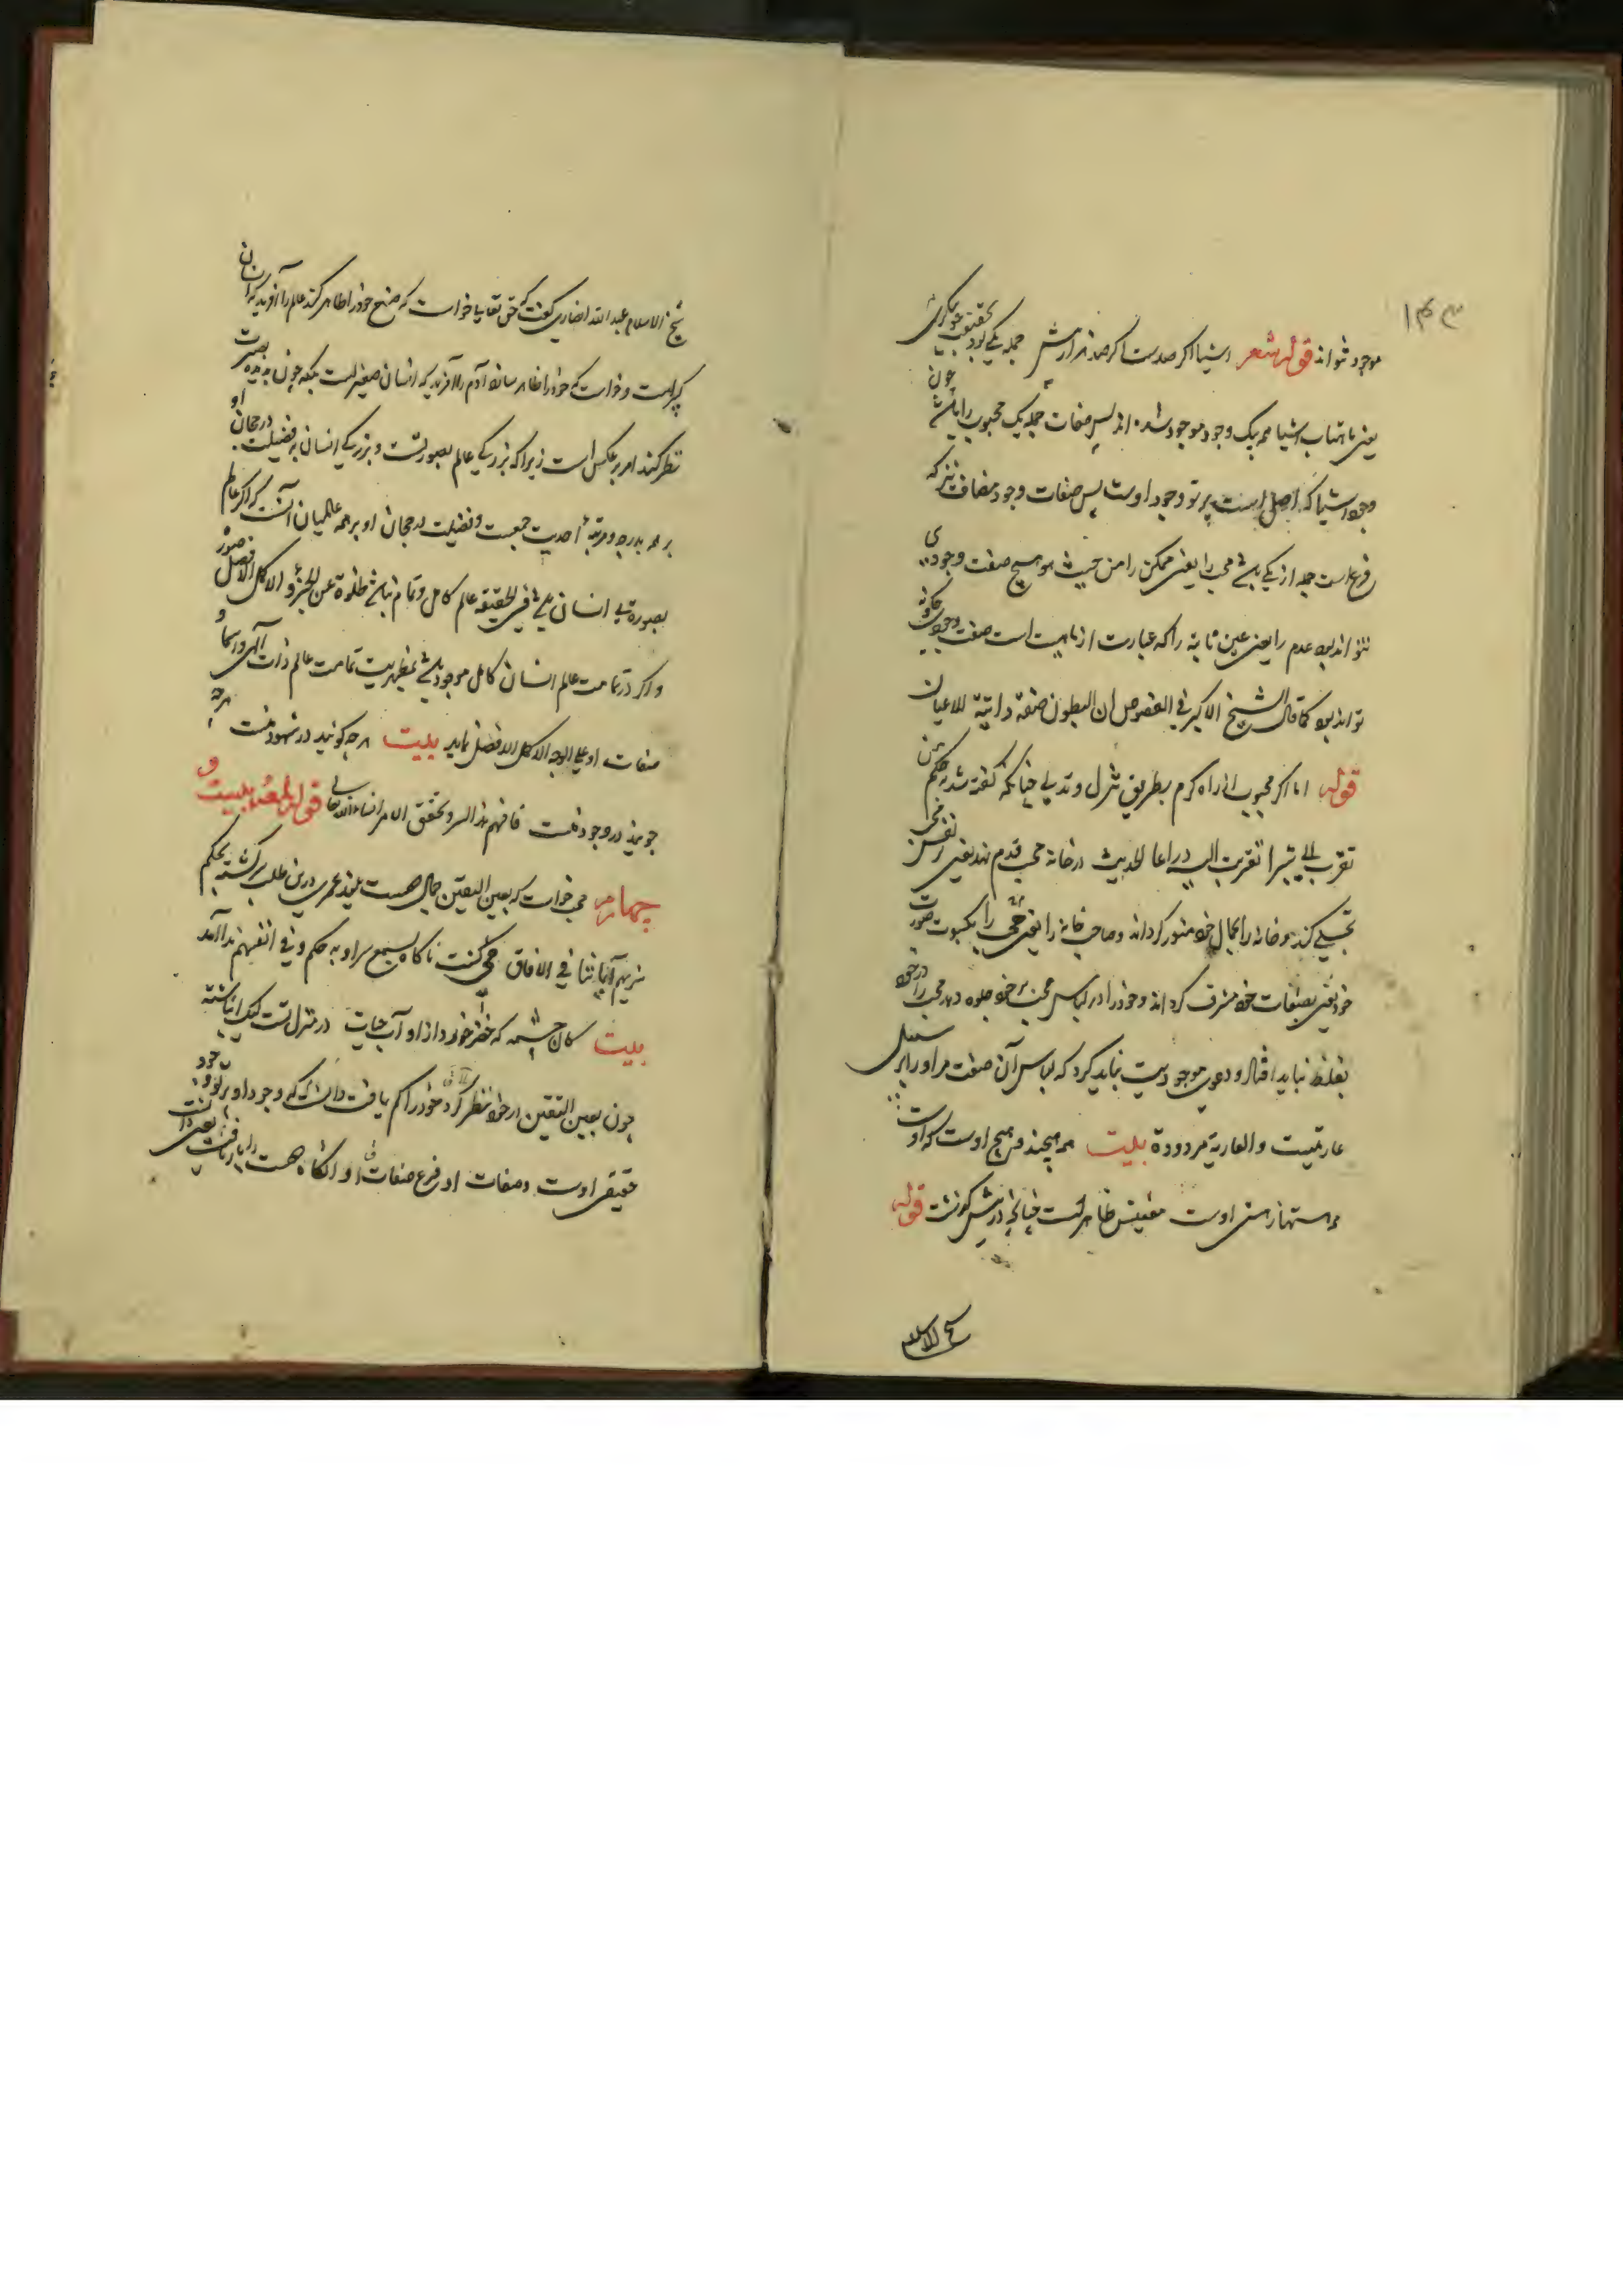 ۱۴۳
موجود شواند قوله شعر اشیا اگر صدست اگر صد هزار بیش جمله یکی بود بحقیقت چو بنگری
یعنی باعتبار اشیا همه بیک وجود موجود شد پس صفات جمله یک محبوب را باشد چون
وجود اشیا که اصل است پرتو وجود اوست پس صفات وجود مضاف نیز که
فرع است جمله از یکی باشد محب را یعنی ممکن را من حیث هو هیچ صفت وجودی
نتواند بود عدم را یعنی عین ثابته را که عبارت از ماهیت است صفت وجودی چگونه
تواند بود کما قال الشیخ الاکبر فی الفصوص ان البطون صفة ذاتیة للاعیان
قوله اما اگر محبوب از راه کرم بطریق تنزل و تدلی چنانکه گفته شد بحکم من
تقرب الی شبرا تقربت الیه ذراعا الحدیث در خانه محب قدم نهد یعنی در نفس محب
تجلی کند و خانه را بجمال خود منور گرداند و صاحب خانه را یعنی محب را بکسوت صورت
خود یعنی بصفات خود مشرف گرداند و خود را در لباس محب بر خود جلوه دهد محب را در خود
بغلط نباید افتاد و دعوی موجودیت نباید کرد که لباس آن صفت مر او را بر سبیل
عاریتست والعاریة مردودة بیت همه هیچند هیچ اوست که اوست
همه هستها ز هستی اوست معنیش ظاهرست چنانچه در پیش گذشت قوله
شیخ الاسلام
شیخ الاسلام عبد الله انصاری گفت که حق تعالی خواست که صنع خود را ظاهر کند عالم را آفرید که انسان
کبیر است و خواست که خود را ظاهر سازد آدم را آفرید که انسان صغیر است بلکه چون بدیده بصیرت
نظر کند امر بر عکس است زیرا که بزرگی عالم بصورتست و بزرگی انسان بفضیلت و رجحان او
بر همه بدرجه و مرتبهٔ احدیت جمعیت و فضیلت و رجحان او بر همه عالمیان آنست که اگر عالم
بصورة بی انسان باشد فی الحقیقه عالم کامل و تمام نباشد خلوه عن الجزو الاکمل الافضل
و اگر در تمامت عالم انسان کامل موجود باشد مظهریت تمامت عالم ذات الهی و اسما و
صفات او علی الوجه الاکمل الافضل نماید بیت هر چه گویند در شهود منست هر چه
جویند در وجود منست فافهم هذا السر و تحقق الامر انشاء الله تعالی قوله لمعهٔ بیست و
چهارم محب خواست که بعین الیقین جمال دوست بیند عمری درین طلب سرگشته بحکم
سنریهم آیاتنا فی الآفاق می گشت ناگاه بسمع سر او به حکم و فی انفسهم ندا آمد
بیت کان چشمه که خضر خورد ازو آب حیات در منزل تست لیک انباشته
چون بعین الیقین در خود نظر کرد خود را گم یافت دانست که وجود او پرتو وجود
حقیقی اوست و صفات او فرع صفات او آنگاه دوست را بازیافت یعنی دانست